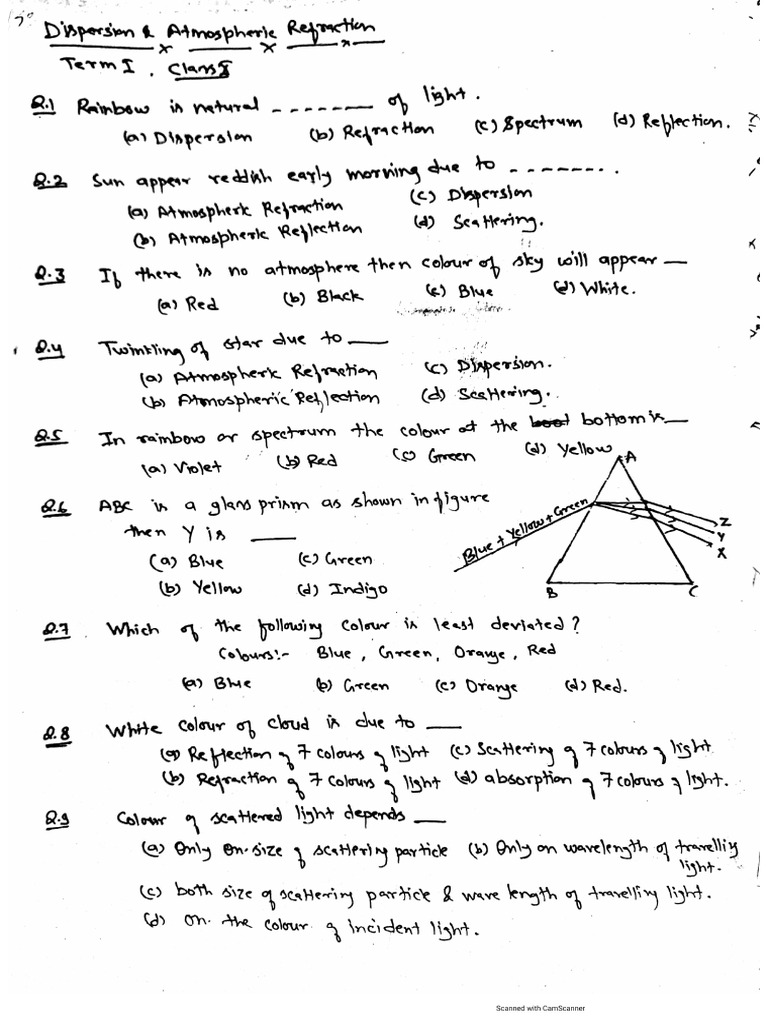 Dispersion & Atmospheric Refraction
Term I. Class X
Q.1 Rainbow is natural ------- of light.
(a) Dispersion (b) Refraction (c) Spectrum (d) Reflection.
Q.2 Sun appear reddish early morning due to -------.
(a) Atmospheric Refraction (c) Dispersion
(b) Atmospheric Reflection (d) Scattering.
Q.3 If there is no atmosphere then colour of sky will appear —
(a) Red (b) Black (c) Blue (d) White.
Q.4 Twinkling of star due to ___
(a) Atmospheric Refraction (c) Dispersion.
(b) Atmospheric Reflection (d) Scattering.
Q.5 In rainbow or spectrum the colour at the bottom is —
(a) Violet (b) Red (c) Green (d) Yellow
Q.6 ABC is a glass prism as shown in figure
then Y is ___
(a) Blue (c) Green
(b) Yellow (d) Indigo
A
Blue + Yellow + Green
Z
Y
X
B C
Q.7 Which of the following colour is least deviated?
Colours:- Blue, Green, Orange, Red
(a) Blue (b) Green (c) Orange (d) Red.
Q.8 White colour of cloud is due to ___
(a) Reflection of 7 colours of light (c) Scattering of 7 colours of light
(b) Refraction of 7 colours of light (d) absorption of 7 colours of light.
Q.9 Colour of scattered light depends ___
(a) Only on size of scattering particle (b) Only on wavelength of travelliy
light.
(c) both size of scattering particle & wave length of travelliy light.
(d) on the colour of incident light.
Scanned with CamScanner